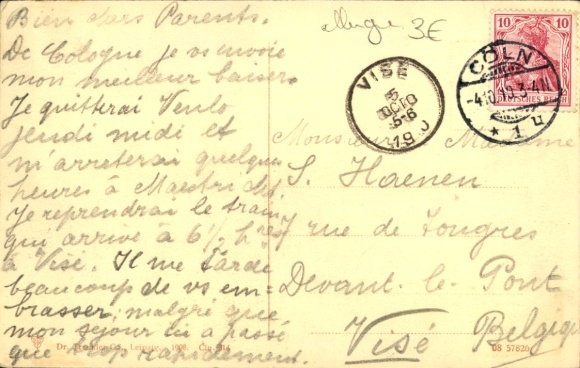 Bien chers Parents.
De Cologne je vs envoie
mon meilleur baiser.
Je quitterai Venlo
jeudi midi et
m'arrêterai quelques
heures à Maestricht.
Je reprendrai le train
qui arrive à 6 1/2 hres
à Visé. Il me tarde
beaucoup de vs em-
brasser, malgré que
mon séjour ici a passé
que trop rapidement.
3E
10 10
DEUTSCHES REICH
CÖLN
4.10.10.3-4N
* 1
VISÉ
5
OCTO
5-6
19
Monsieur Madame
S. Haenen
7 rue de Tongres
Devant-le-Pont
Visé Belgique
Leipzig
08 57826